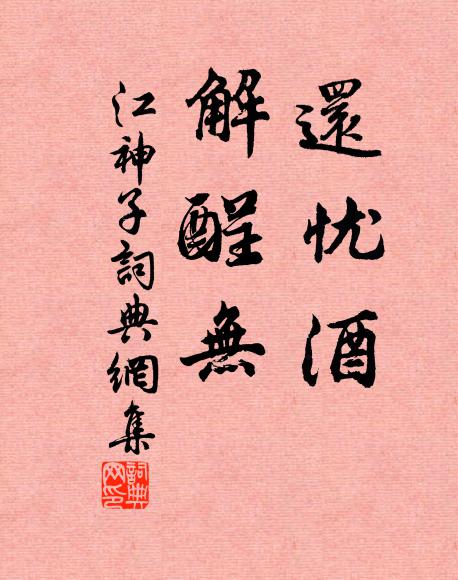 還忧酒
解酲無
江神子詞典網集
詞典
网印